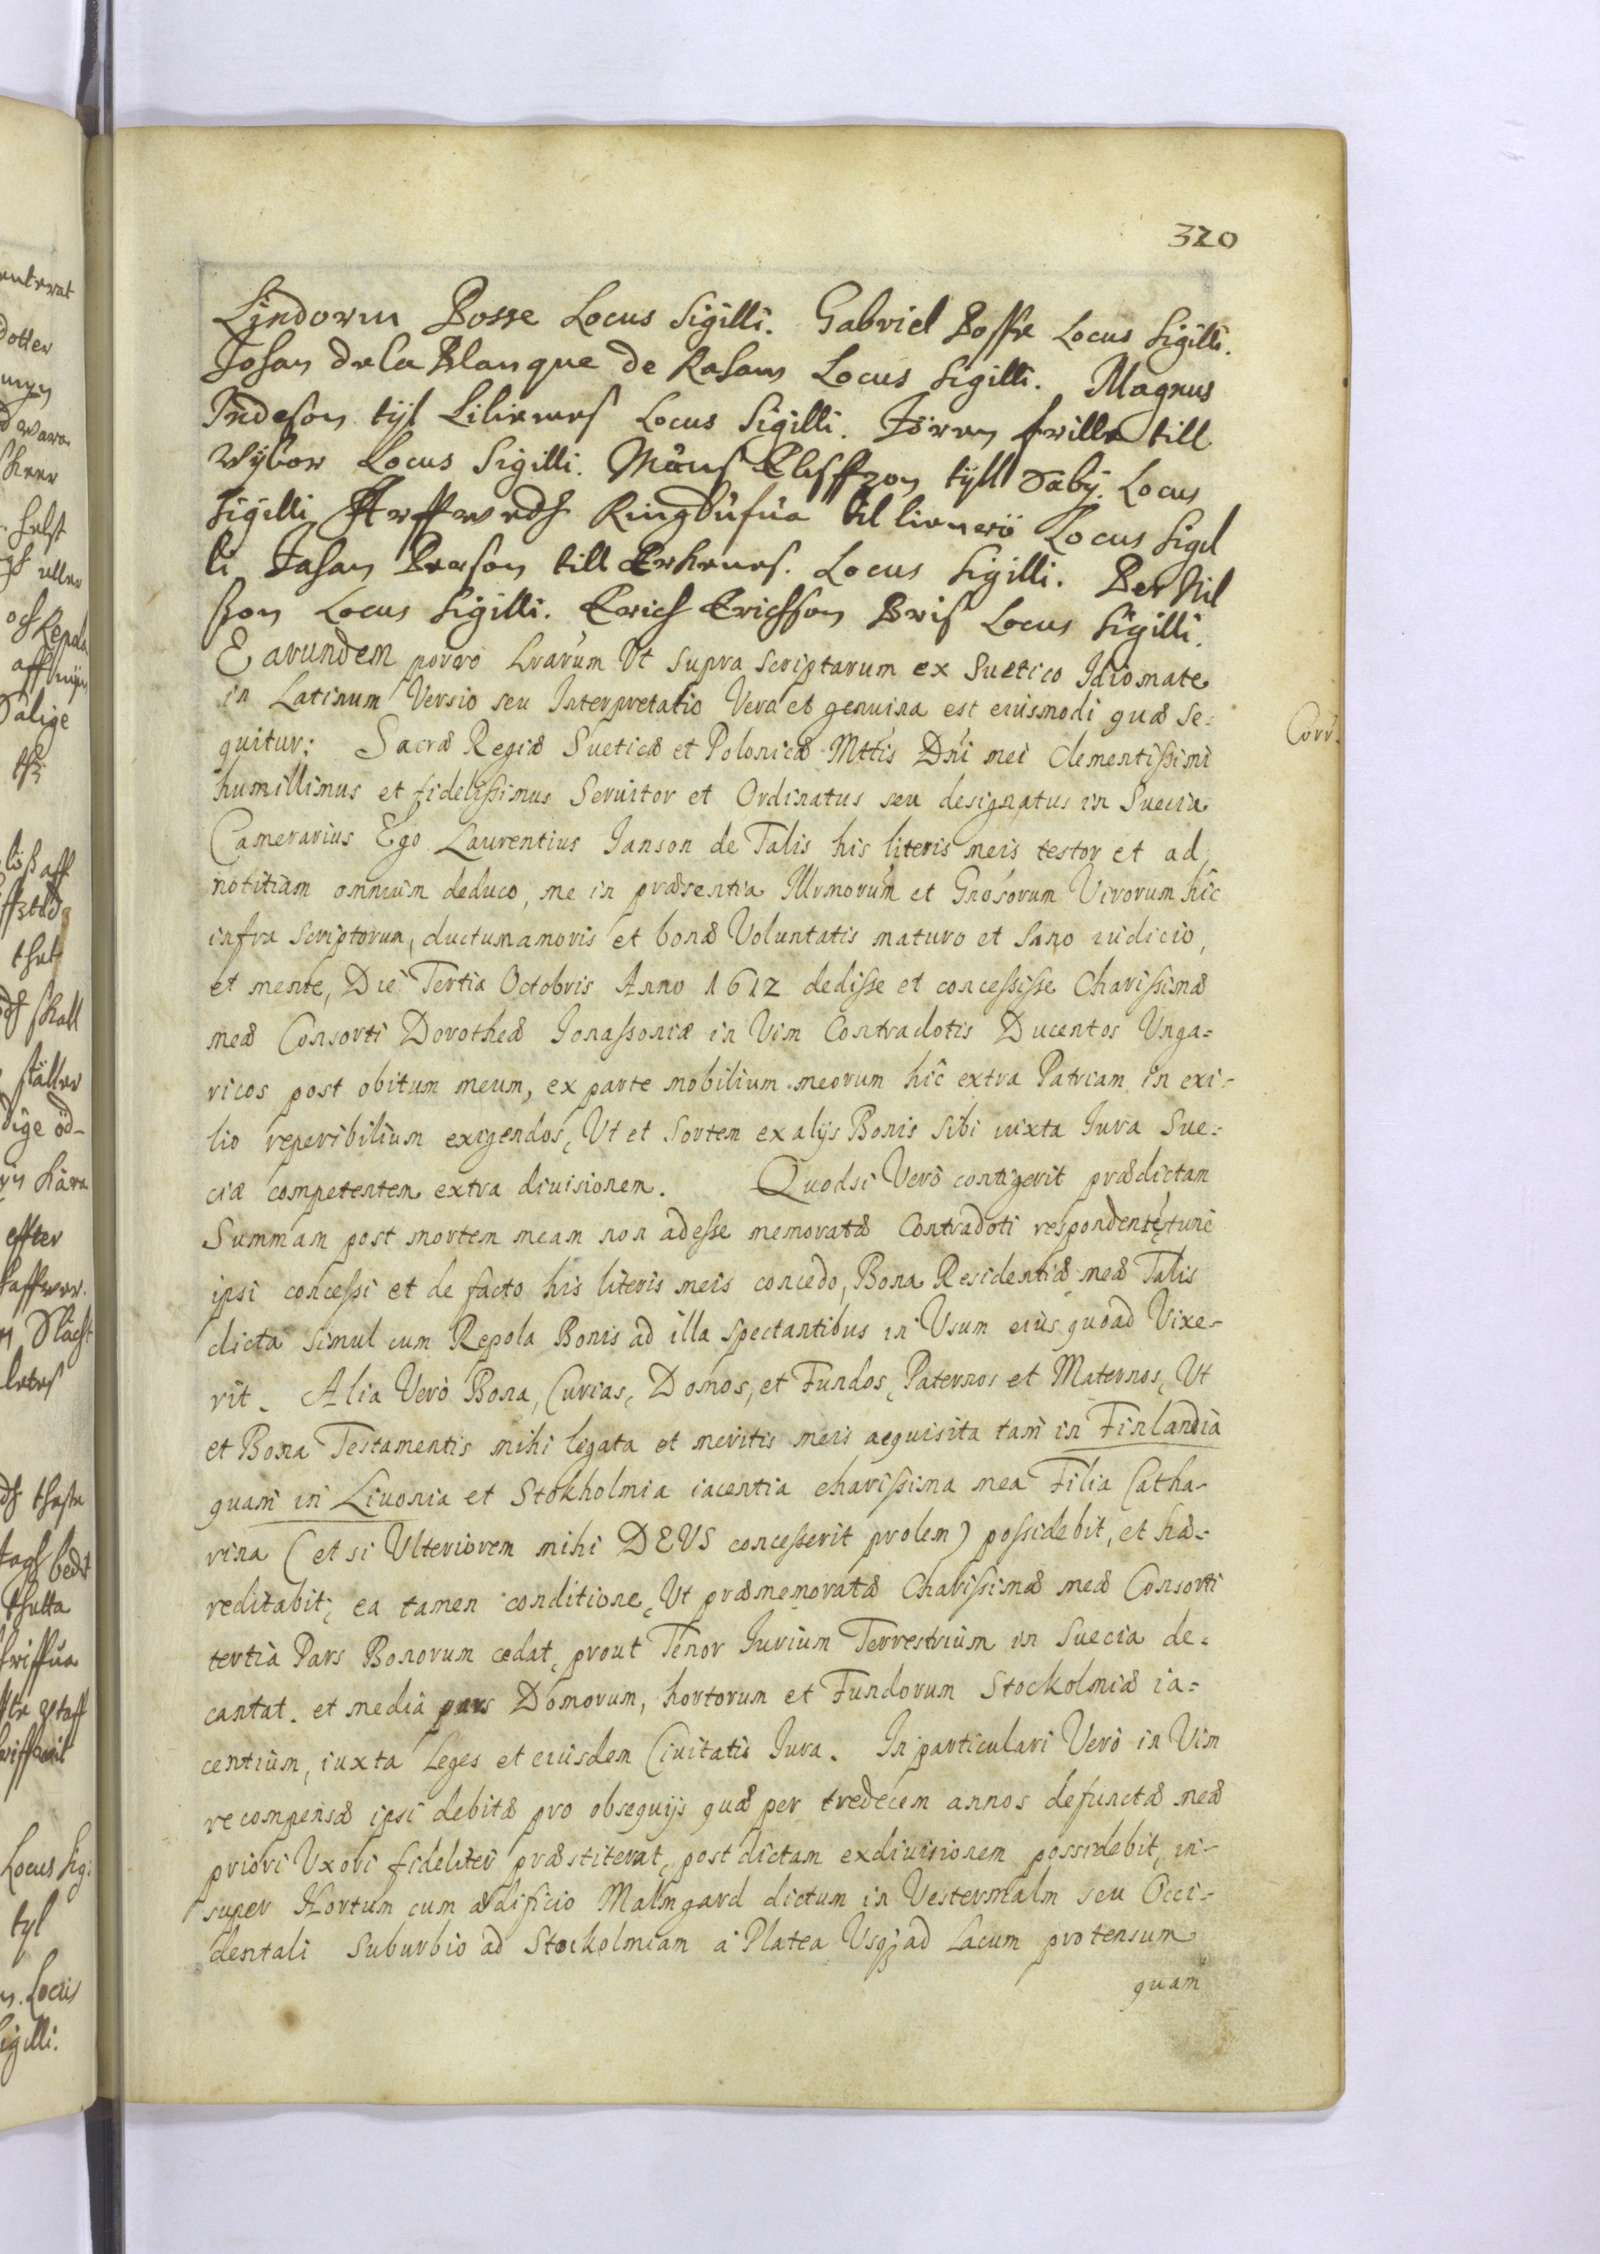 320
Lindorm Bosse Locus Sigilli. Gabriel Posse Locus Sigilli.
Johan dela Blanque de Raham Locus Sigilli. Magnus
Indeson tijl Lilienes Locus Sigilli. Jören frille till
Wÿbor Locus Sigilli. Måns tÿll Säbÿ. Locus
Sigilli til Locus Sigil
li Johan Person till Erkenes. Locus Sigilli. Per Nil
ßon Locus Sigilli. Erich Erichson Bris Locus Sigilli.
Earundem porro Lrarum Vt supra scriptarum ex Suetico Idiomate
in Latinum Versio seu Interpretatio Vera et genuina est eiusmodi quæ se=
quitur: Sacræ Regiæ Sueticæ et Polonicæ Mttis Dni mei Clementissimi
humillimus et fidelissimus Seruitor et Ordinatus seu designatus in Suecia
Camerarius Ego Laurentius Janson de Talis his literis meis testor et ad
notitiam omnium deduco, me in præsentia Illrmorum et Gnosorum Virorum hic
infra scriptorum, ductum amoris et bonæ Voluntatis maturo et sano iudicio,
et mente, Die Tertia Octobris Anno 1612 dedisse et concessisse Charissimæ
meæ Consorti Dorotheæ Jonassoniæ in Vim Contradotis Ducentos Vnga=
ricos post obitum meum, ex parte mobilium meorum hic extra Patriam in exi=
lio reperibilium exigendos, Vt et Sortem ex alijs Bonis sibi iuxta Jura Sue=
ciæ competentem extra diuisionem. Quodsi Verò contigerit prædictam
Summam post mortem meam non adesse memoratæ Contradoti respondentem tunc
ipsi concessi et de facto his literis meis concedo, Bona Residentiæ meæ Talis
dicta simul cum Repola Bonis ad illa spectantibus in Vsum eius quoad Vixe=
rit. Alia Verò Bona, Curias, Domos, et Fundos, Paternos et Maternos, Vt
et Bona Testamentis mihi legata et meritis meis acquisita tam in Finlandia
quam in Liuonia et Stokholmia iacentia charissima mea Filia Catha=
rina (et si Vlteriorem mihi DEVS concesserit prolem) possidebit, et hæ=
reditabit; ea tamen conditione, Vt præmemoratæ Charissimæ meæ Consorti
tertia Pars Bonorum cedat, prout Tenor Jurium Terrestrium in Suecia de=
cantat. et media pars Domorum, hortorum et Fundorum Stockolmiæ ia=
centium, iuxta Leges et eiusdem Ciuitatis Jura. In particulari Verò in Vim
recompensæ ipsi debitæ pro obsequijs quæ per tredecem annos defunctæ meæ
priori Vxori fideliter præstiterat, post dictam exdiuisionem possidebit, in=
super Hortum cum ædificio Malmgard dictum in Vestermalm seu Occi=
dentali Suburbio ad Stockolmiam à Platea Vsq; ad Lacum protensum
quam
Corr.